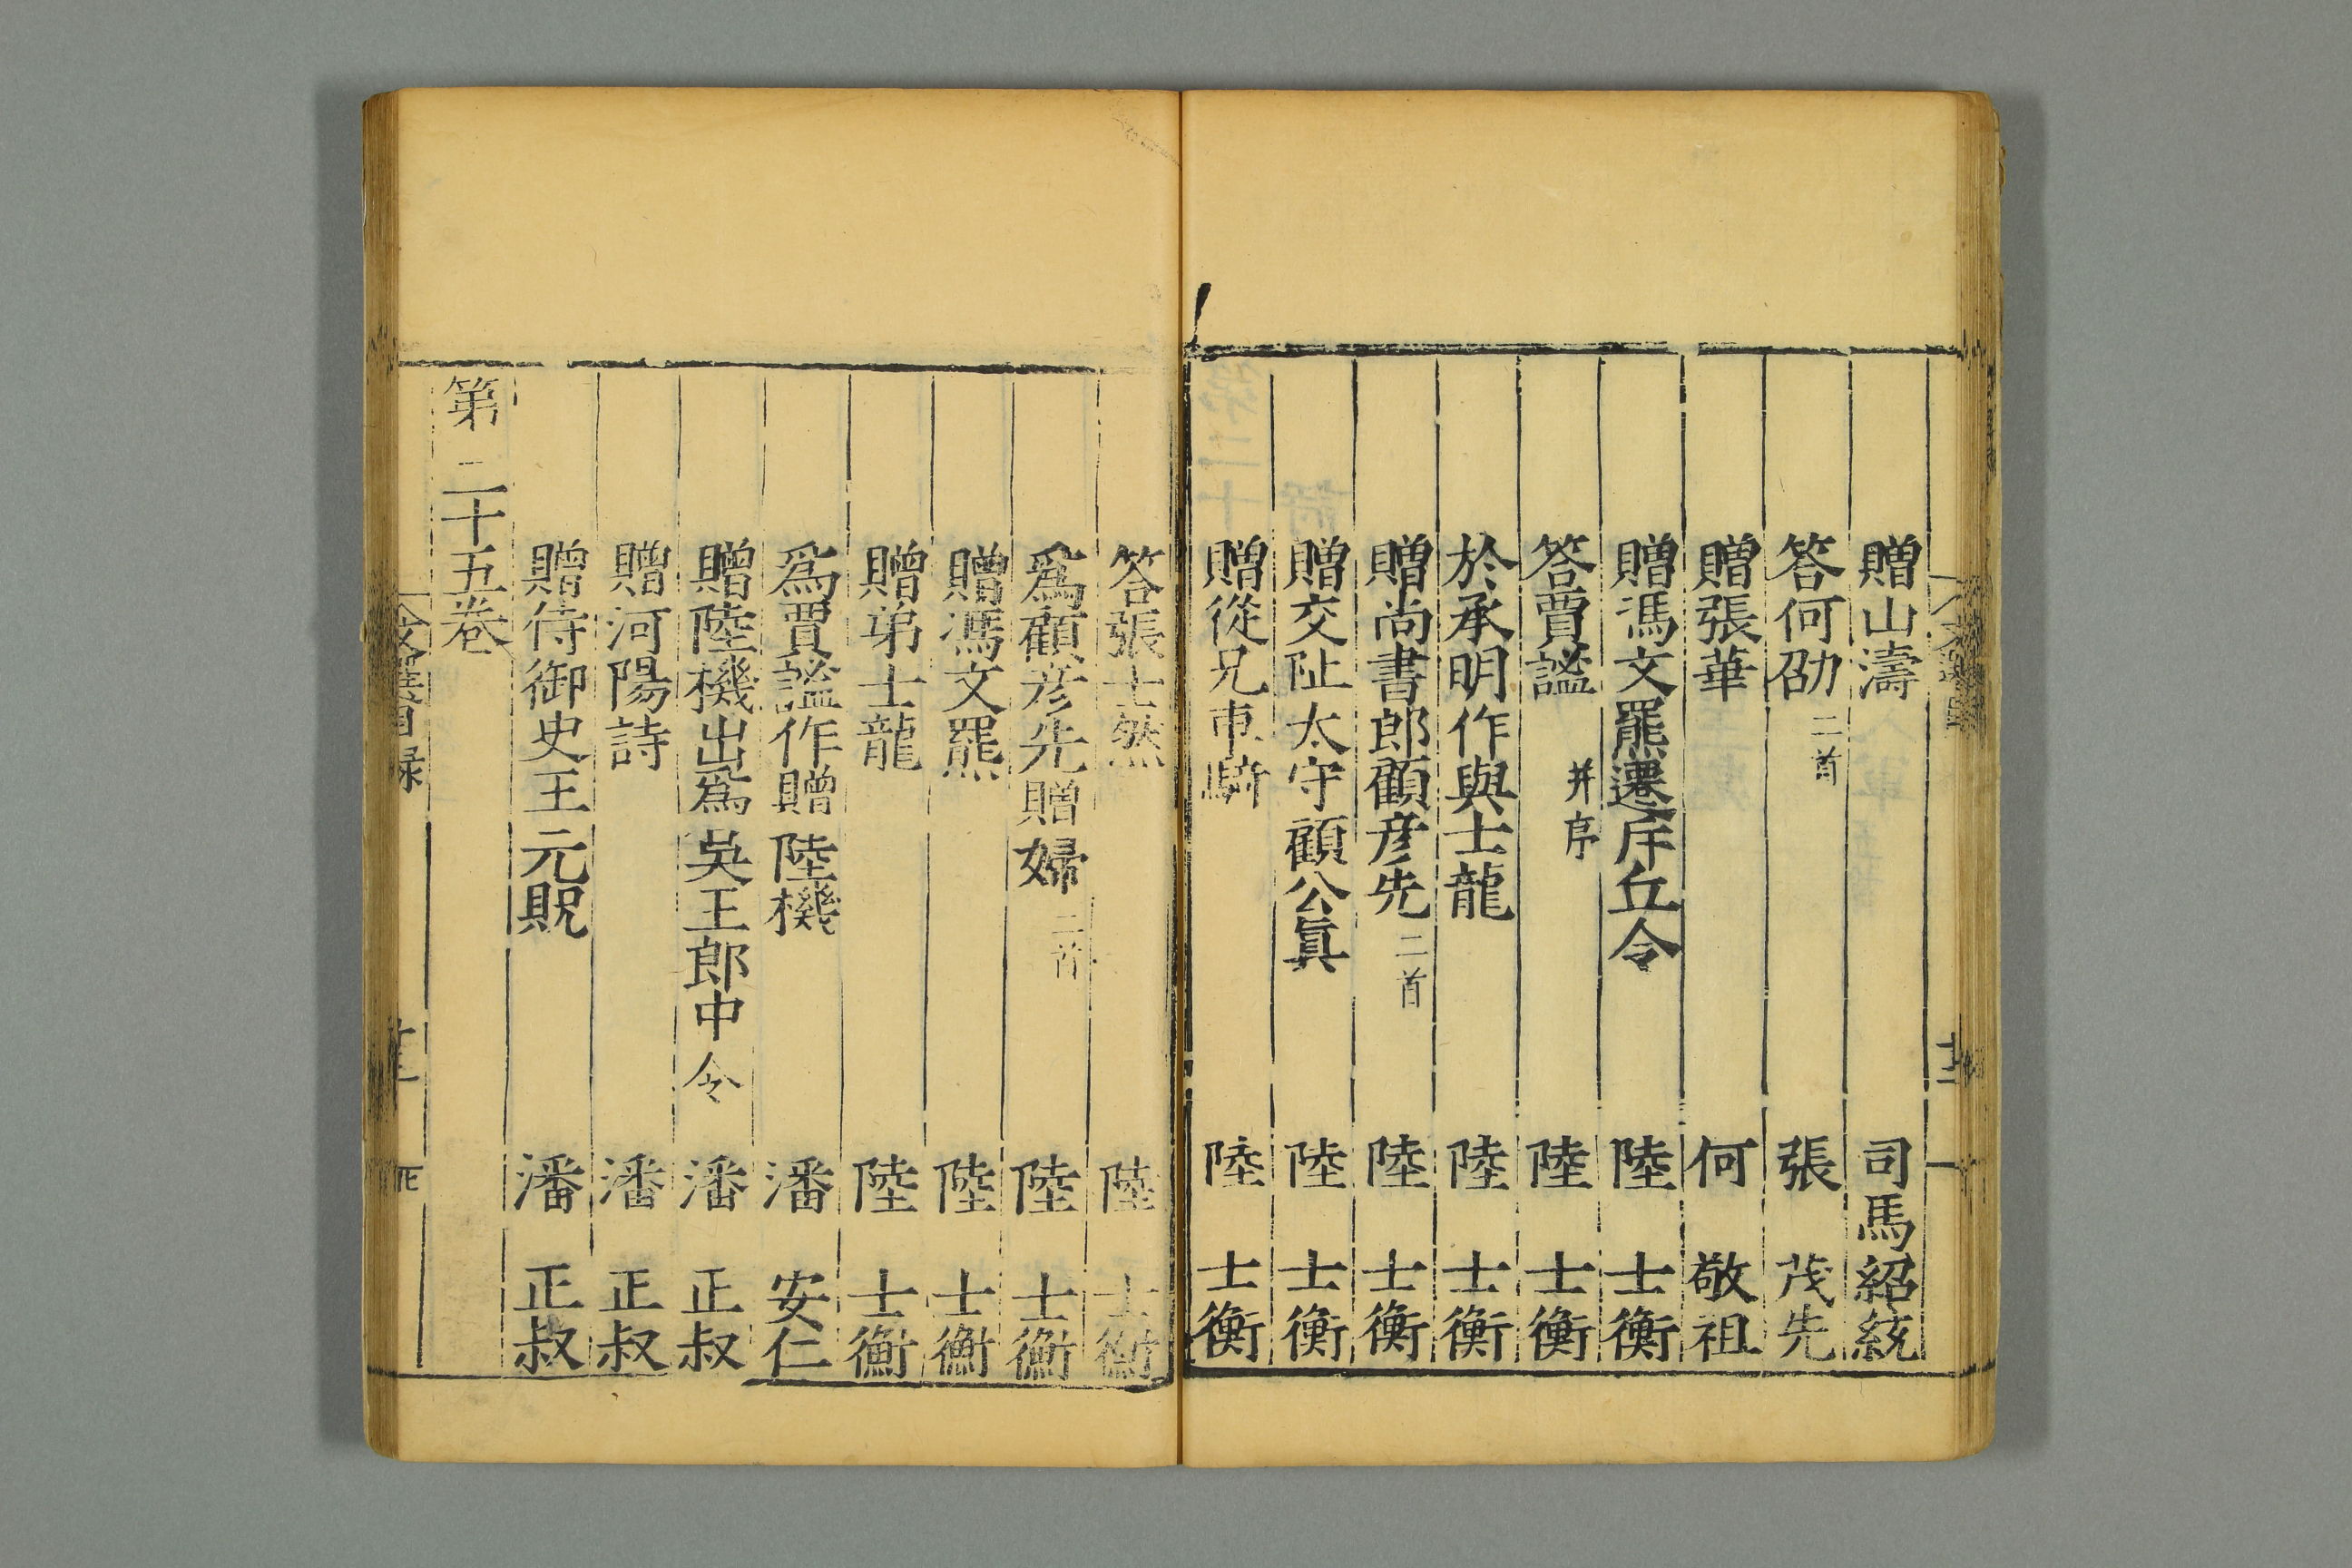 贈山濤 司馬紹統
答何劭 二首 張茂先
贈張華 何敬祖
贈馮文羆遷斥丘令 陸士衡
答賈謐 并序 陸士衡
於承明作與士龍 陸士衡
贈尚書郎顧彦先 二首 陸士衡
贈交阯太守顧公眞 陸士衡
贈從兄車騎 陸士衡
答張士然 陸士衡
爲顧彦先贈婦 二首 陸士衡
贈馮文羆 陸士衡
贈弟士龍 陸士衡
爲賈謐作贈陸機 潘安仁
贈陸機出爲吳王郎中令 潘正叔
贈河陽詩 潘正叔
贈侍御史王元貺 潘正叔
第二十五卷
文選目録